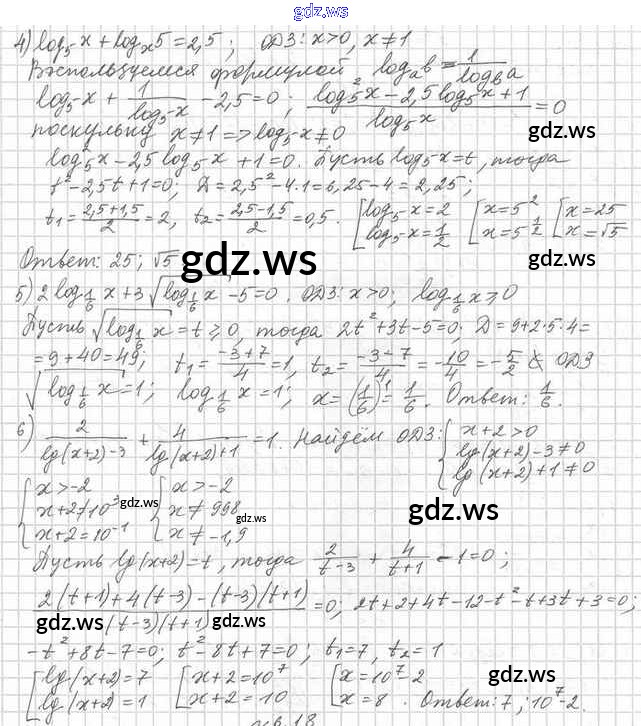 gdz.ws
4) log₅x + logₓ5 = 2,5; ОДЗ: x>0, x≠1
Воспользуемся формулой logₐb = 1/log_b a
log₅x + 1/log₅x - 2,5 = 0; (log₅²x - 2,5log₅x + 1)/log₅x = 0
поскольку x≠1 => log₅x ≠ 0 gdz.ws
log₅²x - 2,5log₅x + 1 = 0. Пусть log₅x = t, тогда
t² - 2,5t + 1 = 0; D = 2,5² - 4·1 = 6,25 - 4 = 2,25;
t₁ = (2,5+1,5)/2 = 2, t₂ = (2,5-1,5)/2 = 0,5. [log₅x = 2 [x = 5² [x = 25
log₅x = 1/2 x = 5^(1/2) x = √5
Ответ: 25; √5 gdz.ws gdz.ws
5) 2log_(1/6) x + 3√(log_(1/6) x) - 5 = 0. ОДЗ: x>0; log_(1/6) x ≥ 0
Пусть √(log_(1/6) x) = t ≥ 0, тогда 2t² + 3t - 5 = 0; D = 9 + 2·5·4 =
= 9 + 40 = 49; t₁ = (-3+7)/4 = 1, t₂ = (-3-7)/4 = -10/4 = -5/2 ∉ ОДЗ
√(log_(1/6) x) = 1; log_(1/6) x = 1; x = (1/6)¹ = 1/6. Ответ: 1/6.
6) 2/(lg(x+2)-3) + 4/(lg(x+2)+1) = 1. Найдём ОДЗ: {x+2>0
lg(x+2)-3≠0
lg(x+2)+1≠0
{x>-2 {x>-2
x+2≠10³ gdz.ws x≠998 gdz.ws gdz.ws
x+2=10⁻¹ x≠-1,9
Пусть lg(x+2) = t, тогда 2/(t-3) + 4/(t+1) - 1 = 0;
(2(t+1)+4(t-3)-(t-3)(t+1))/((t-3)(t+1)) = 0; 2t+2+4t-12-t²-t+3t+3=0;
gdz.ws gdz.ws
-t²+8t-7=0; t²-8t+7=0; t₁=7, t₂=1
[lg(x+2)=7 [x+2=10⁷ [x=10⁷-2 gdz.ws
lg(x+2)=1 x+2=10 x=8. Ответ: 7; 10⁷-2.